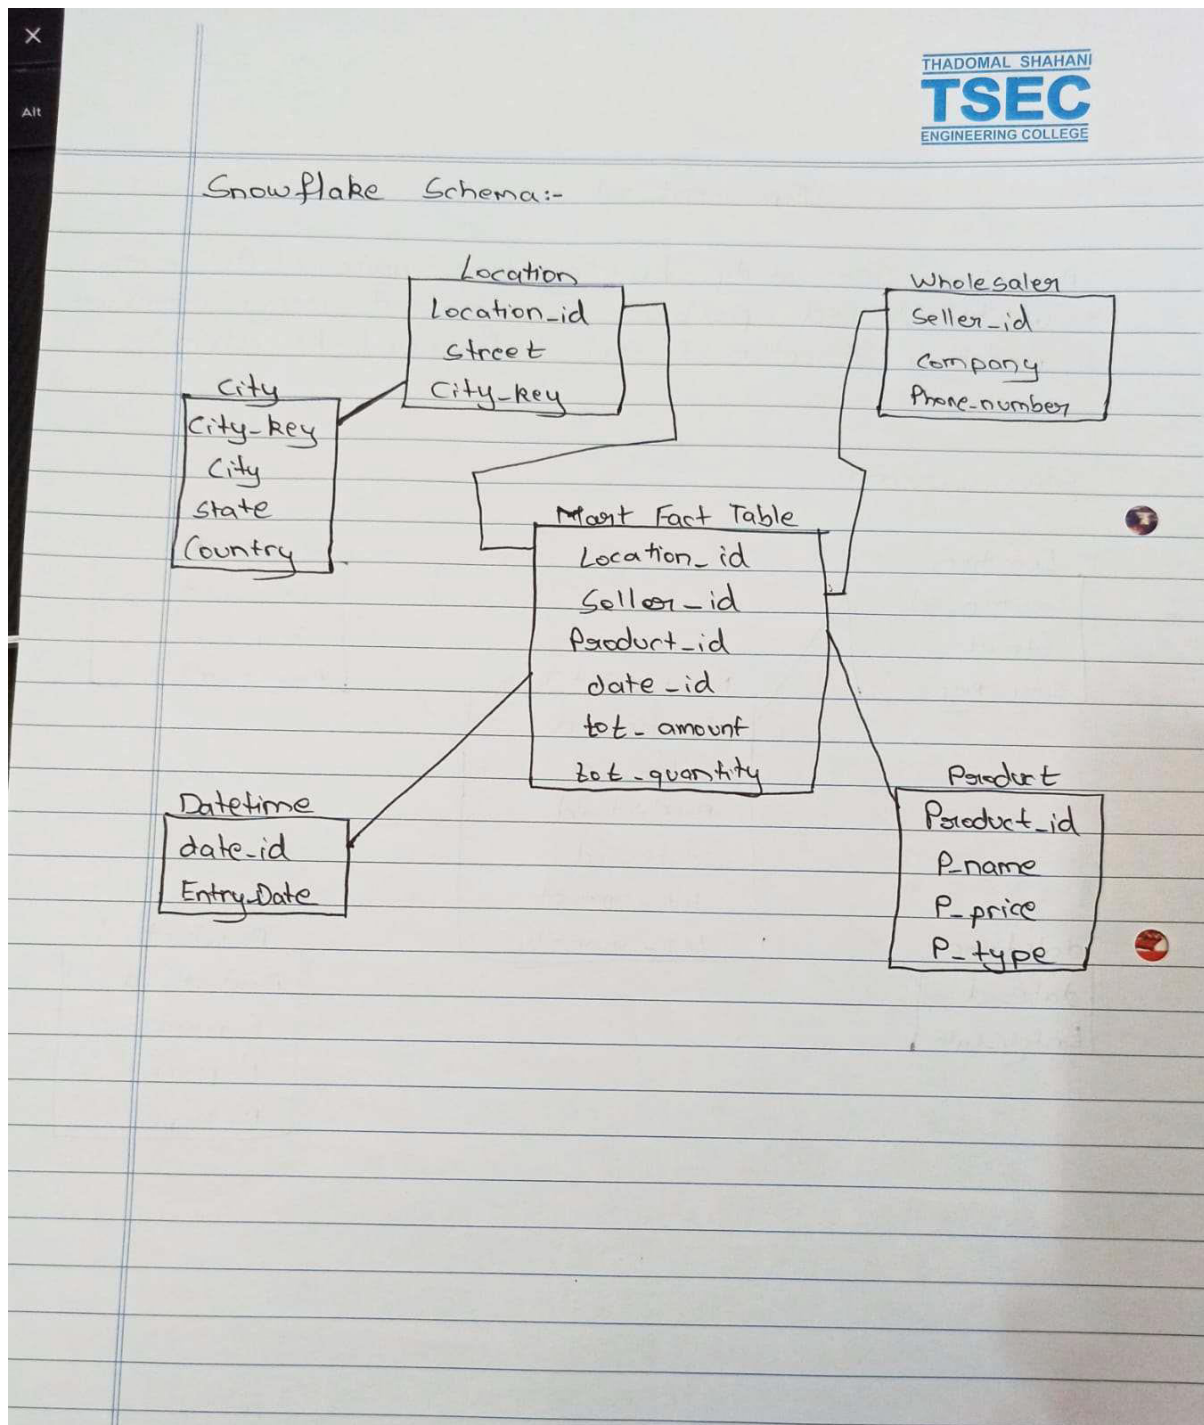 X
Alt
THADOMAL SHAHANI
TSEC
ENGINEERING COLLEGE
Snowflake Schema:-
Location
Location_id
street
City_key
Wholesaler
Seller_id
Company
Phone_number
City
City_key
City
State
Country
Mart Fact Table
Location_id
Seller_id
Product_id
date_id
tot_amount
tot_quantity
Datetime
date_id
Entry_Date
Product
Product_id
P_name
P_price
P_type